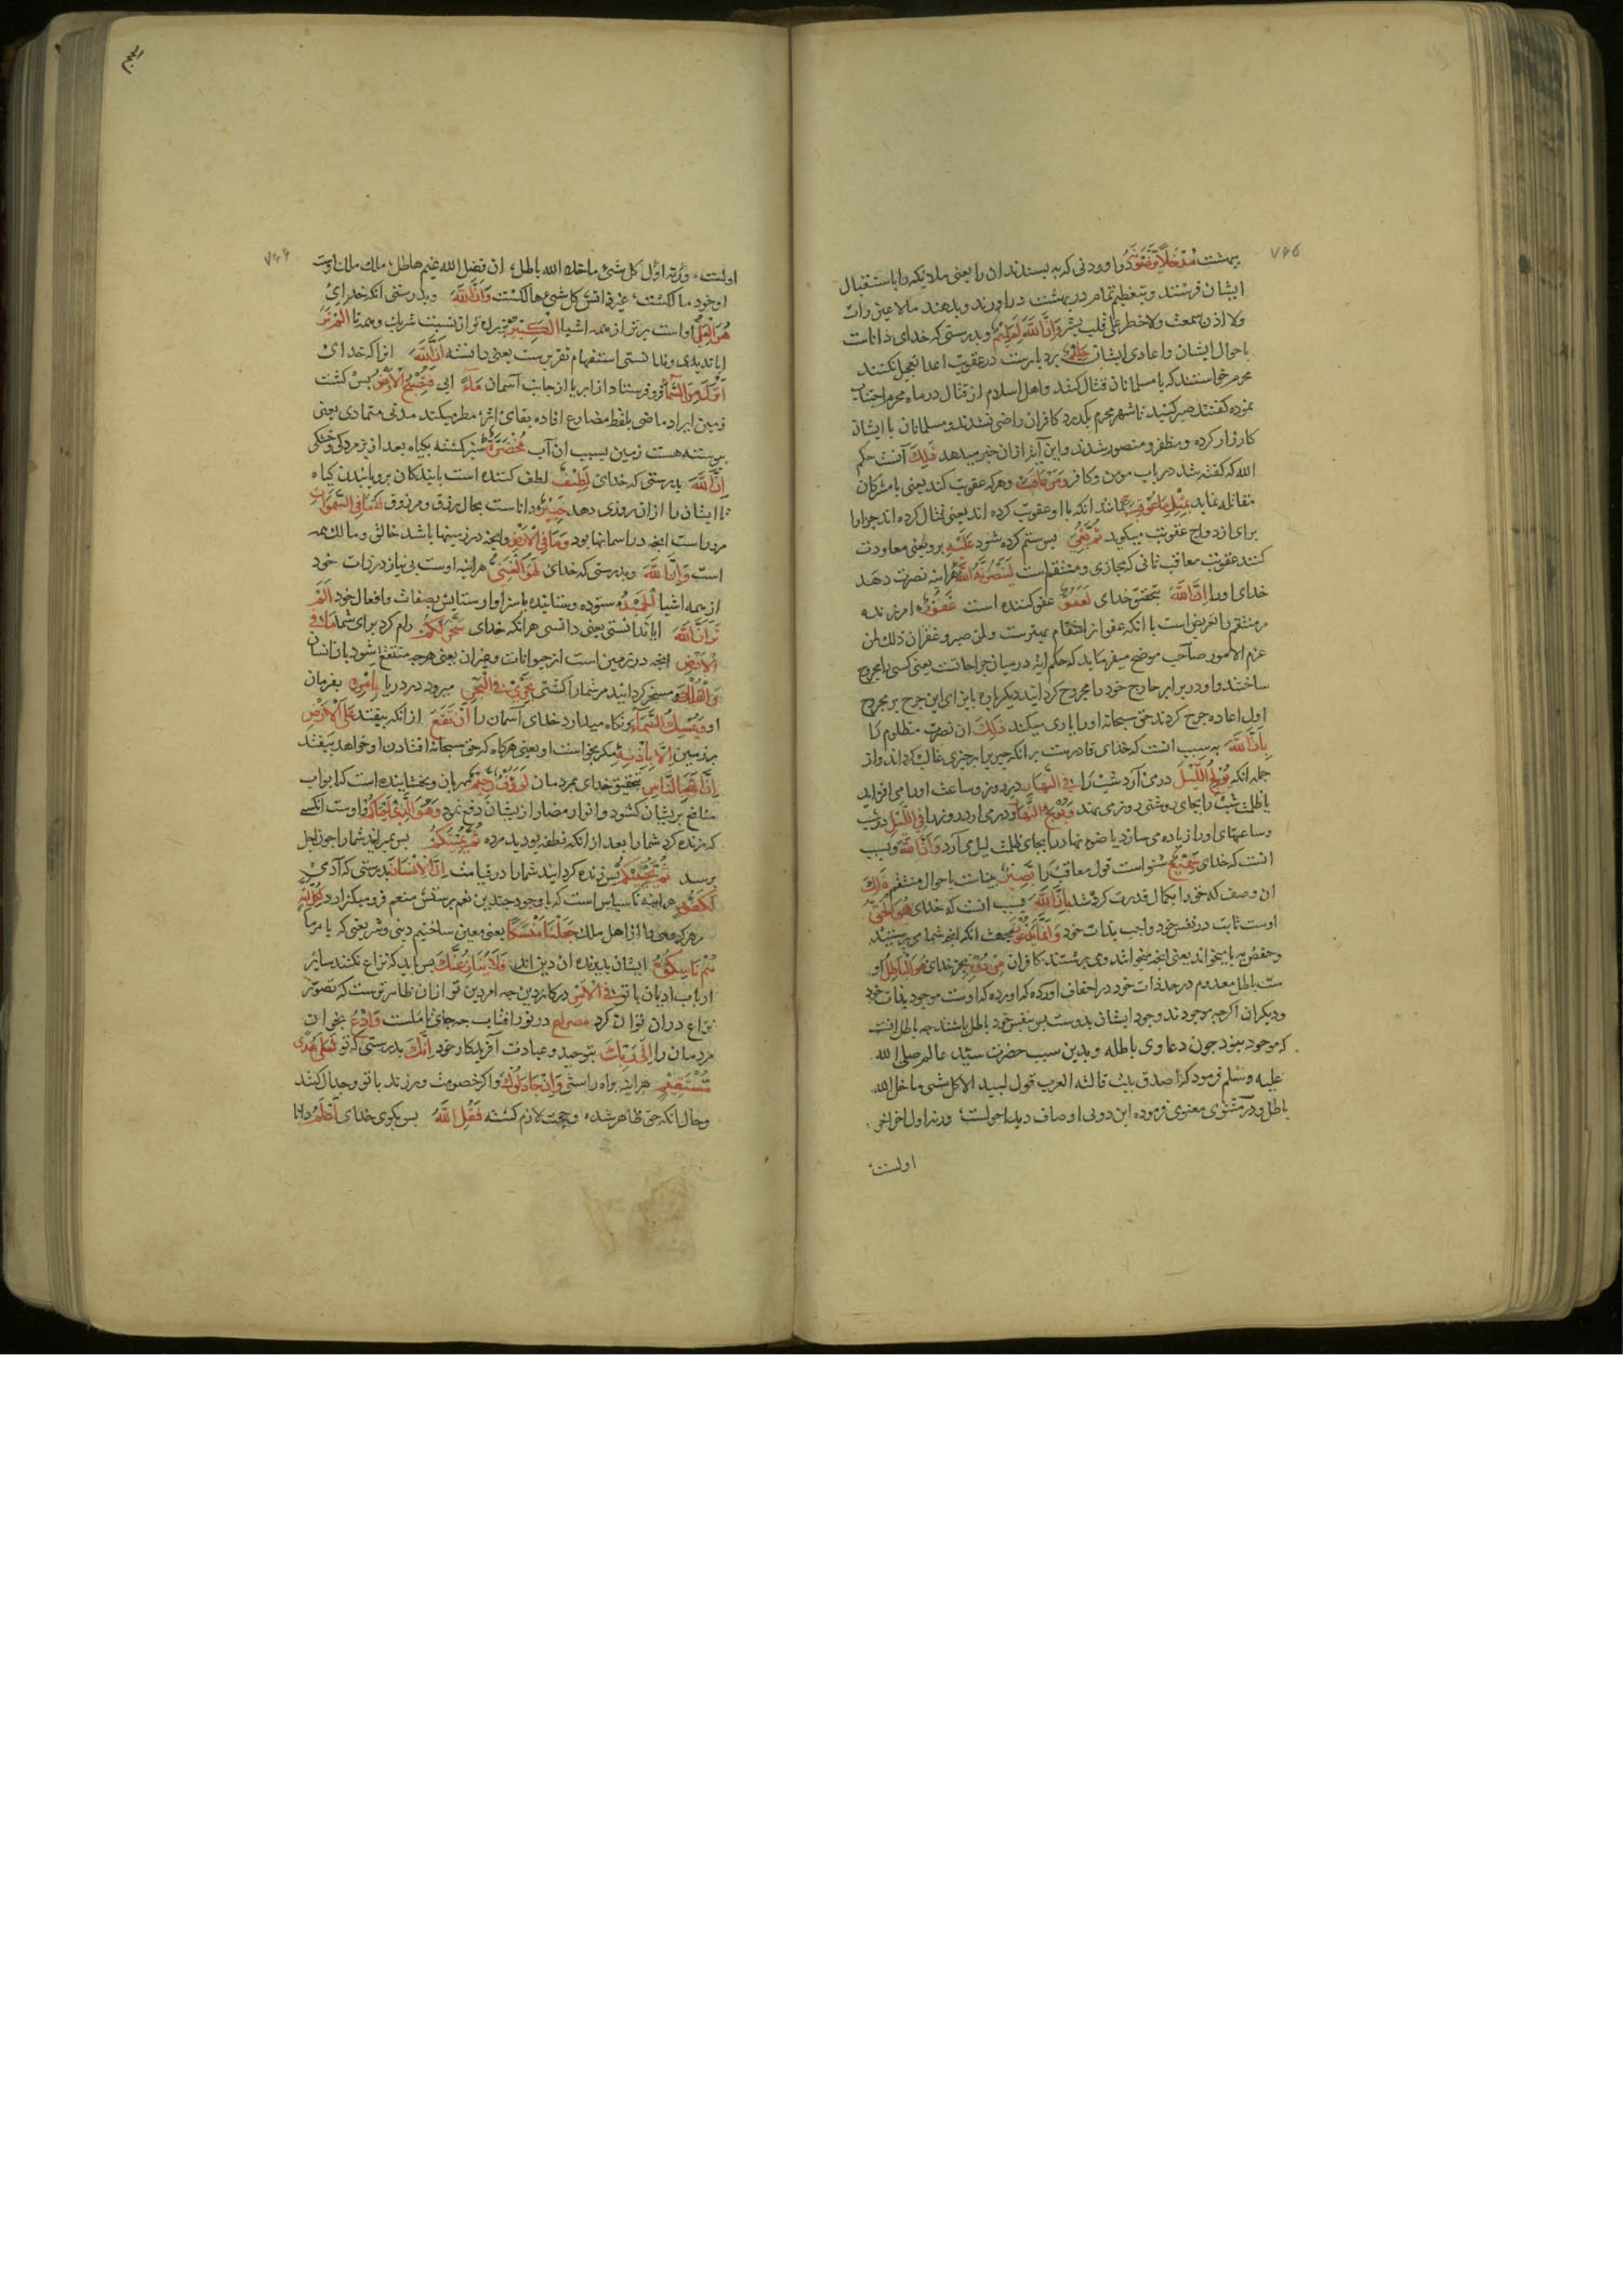 ۷۴۵
بهشت مُدْخَلًا يَرْضَوْنَهُ در اوردنی که به پسندند ان را یعنی ملائکه را باستقبال
ایشان فرستند و بتعظیم تمام در بهشت در اورند و بدهند مالا عین رات
ولا اذن سمعت ولا خطر علی قلب بشر وَاِنَّ اللّٰهَ لَعَلِیْمٌ و بدرستی که خدای داناست
باحوال ایشان و اعادی ایشان حَلِیْمٌ بردبارست در عقوبت اعدا تعجیل نکنند
محرم خواستند که با مسلمانان قتال کنند و اهل اسلام از قتال در ماه محرم اجتناب
نموده گفتند صبر کنید تا شهر محرم بکذرد کافران راضی نشدند و مسلمانان با ایشان
کارزار کرده و مظفر و منصور شدند و این آیه ازان خبر میدهد ذٰلِكَ آنست حکم
الله که کفته شد در باب مومن و کافر وَمَنْ عَاقَبَ و هرکه عقوبت کند یعنی با مشرکان
مقاتله نماید بِمِثْلِ مَا عُوْقِبَ بِهٖ مانند انکه با او عقوبت کرده اند یعنی قتال کرده اند جزا را
برای ازدواج عقوبت میکوید ثُمَّ بُغِیَ پس ستم کرده شود عَلَیْهِ برو یعنی معاودت
کنند عقوبت معاقب ثانی که مجازی و منتقم است لَیَنْصُرَنَّهُ اللّٰهُ هرآینه نصرت دهد
خدای اورا اِنَّ اللّٰهَ بتحقیق خدای لَعَفُوٌّ عفو کننده است غَفُوْرٌ امرزنده
مر منتقم را تعریض است با انکه عفو از انتقام بهترست ولمن صبر و غفر ان ذلک لمن
عزم الامور صاحب موضح میفرماید که حکم ایه در میان جراحاتست یعنی کسی را مجروح
ساختند و او در برابر جارح خود را مجروح کردانید دیکرباره بازای این جرح بر مجروح
اول اعاده جرح کردند حق سبحانه اورا یاری میکند ذٰلِكَ ان نصرت مظلوم را
بِاَنَّ اللّٰهَ به سبب انست که خدای قادرست بر انکه چیزی را بر چیزی غالب کرداند و از
جمله انکه یُوْلِجُ الَّیْلَ در می آرد شب را فِی النَّهَارِ در روز و ساعت اورا می افزاید
یا ظلمت شب را بجای روشنی روز می نهد وَیُوْلِجُ النَّهَارَ و در می ارد روز را فِی الَّیْلِ در شب
و ساعتهای اورا زیاده می سازد یا ضوء نهار را بجای ظلمت لیل می آرد وَاَنَّ اللّٰهَ و بسبب
انست که خدای سَمِیْعٌ شنواست قول معاقب را بَصِیْرٌ بیناست باحوال منتقم ذٰلِكَ
ان وصف که خود را بکمال قدرت کرده شد بِاَنَّ اللّٰهَ بسبب انست که خدای هُوَ الْحَقُّ
اوست ثابت در نفس خود واجب بذات خود وَاَنَّ مَا یَدْعُوْنَ بجهت انکه انچه شما می پرستید
و حفص به یا میخواند یعنی انچه میخوانند و می پرستند کافران مِنْ دُوْنِهٖ بجز خدای هُوَ الْبَاطِلُ او
ست باطل معدوم در حد ذات خود در احقاف اورده که اوست موجود بذات خود
و دیکران اکرچه موجودند وجود ایشان بدوست پس بنفس خود باطل باشند چه باطل انست
که موجود نبود چون دعاوی باطله و بدین سبب حضرت سید عالم صلی الله
علیه وسلم فرمود که اصدق بیت قالته العرب قول لبید الا کل شی ما خلا الله
باطل و در مثنوی معنوی فرموده این دوئی اوصاف دیده احولست ورنه اول آخر آخر
اولست
۷۴۶
اولست ورنه اول کل شیء ما خلا الله باطل ان فضل الله غیم هاطل ملک ملک اوست
او خود مالکست غیر ذاتش کل شیء هالکست وَاَنَّ اللّٰهَ و بدرستی انکه خدای
هُوَ الْعَلِیُّ اوست برتر از همه اشیا الْكَبِیْرُ بزرکوار از نسبت شریک و همتا اَلَمْ تَرَ
ایا ندیدی و ندانستی استفهام تقریرست یعنی دانسته اَنَّ اللّٰهَ انرا که خدای
اَنْزَلَ مِنَ السَّمَآءِ فرو فرستاد از ابر یا از جانب آسمان مَآءً ابی فَتُصْبِحُ الْاَرْضُ پس کشت
زمین ایراد ماضی بلفظ مضارع افاده بقای اثر مطر میکند مدتی متمادی یعنی
پیوسته هست زمین بسبب ان آب مُخْضَرَّةً سبز کشته بکیاه بعد از پژمردکی و خشکی
اِنَّ اللّٰهَ بدرستی که خدای لَطِیْفٌ لطف کننده است با بندکان برویانیدن کیاه
تا ایشان را ازان روزی دهد خَبِیْرٌ داناست بحال رزق و مرزوق لَهٗ مَا فِی السَّمٰوٰتِ
مروراست انچه در اسمانها بود وَمَا فِی الْاَرْضِ و انچه در زمینها باشد خالق و مالک همه
است وَاِنَّ اللّٰهَ و بدرستی که خدای لَهُوَ الْغَنِیُّ هرآینه اوست بی نیاز در ذات خود
از همه اشیا الْحَمِیْدُ ستوده و ستاینده یا سزاوار ستایش بصفات و افعال خود اَلَمْ
تَرَ اَنَّ اللّٰهَ ایا ندانستی یعنی دانستی هرانکه خدای سَخَّرَ لَكُمْ رام کرد برای شما مَا فِی
الْاَرْضِ انچه در زمین است از حیوانات و غیر ان یعنی هرچه منتفع شود بان انسان
وَالْفُلْكَ و مسخر کردانید مر شما را کشتی تَجْرِیْ فِی الْبَحْرِ میرود در دریا بِاَمْرِهٖ بفرمان
او وَیُمْسِكُ السَّمَآءَ و نکاه میدارد خدای آسمان را اَنْ تَقَعَ از انکه بیفتد عَلَی الْاَرْضِ
بر زمین اِلَّا بِاِذْنِهٖ مکر بخواست او یعنی هرکاه که حق سبحانه افتادن او خواهد بیفتد
اِنَّ اللّٰهَ بِالنَّاسِ بتحقیق خدای بمردمان لَرَءُوْفٌ رَحِیْمٌ مهربان و بخشاینده است که ابواب
منافع بریشان کشود و انواع مضار از یشان دفع نمود وَهُوَ الَّذِیْ اَحْیَاكُمْ و اوست انکسی
که زنده کرد شما را بعد از انکه نطفه بودید مرده ثُمَّ یُمِیْتُكُمْ پس بمیراند شما را چون اجل
برسد ثُمَّ یُحْیِیْكُمْ پس زنده کرداند شما را در قیامت اِنَّ الْاِنْسَانَ بدرستی که آدمی
لَكَفُوْرٌ هرآینه ناسپاس است که با وجود چندین نعم پرستش منعم فرو میکذارد لِكُلِّ اُمَّةٍ
مر هر کروهی را از اهل ملل جَعَلْنَا مَنْسَكًا یعنی معین ساختیم دینی و شریعتی که یا مر ما
هُمْ نَاسِكُوْهُ ایشان پذیرنده ان دین اند فَلَا یُنَازِعُنَّكَ پس باید که نزاع نکنند سایر
ارباب ادیان با تو فِی الْاَمْرِ در کار دین چه امر دین تو ازان ظاهرترست که تصور
نزاع دران توان کرد مصراع در نور افتاب چه جای تاملست وَادْعُ بخوان
مردمان را اِلٰی رَبِّكَ بتوحید و عبادت آفریدکار خود اِنَّكَ بدرستی که تو لَعَلٰی هُدًی
مُسْتَقِیْمٍ هرآینه براه راستی وَاِنْ جَادَلُوْكَ و اکر خصومت ورزند با تو و جدال کنند
و حال انکه حق ظاهر شده و حجت لازم کشته فَقُلِ اللّٰهُ پس بکوی خدای اَعْلَمُ دانا